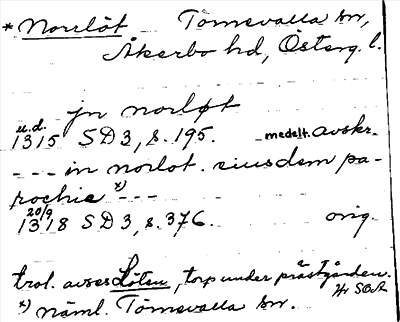 * Norrlöt Törnevalla sn,
Åkerbo hd, Österg. l.
jn norløt
u.d.
1315 SD 3, s. 195. medelt. avskr.
--- in norlot. eiusdem pa-
rochie x) ---
20/9
1318 SD 3, s. 376. orig.
trol. avses Löten, torp under prästgården.
x) näml. Törnevalla sn.